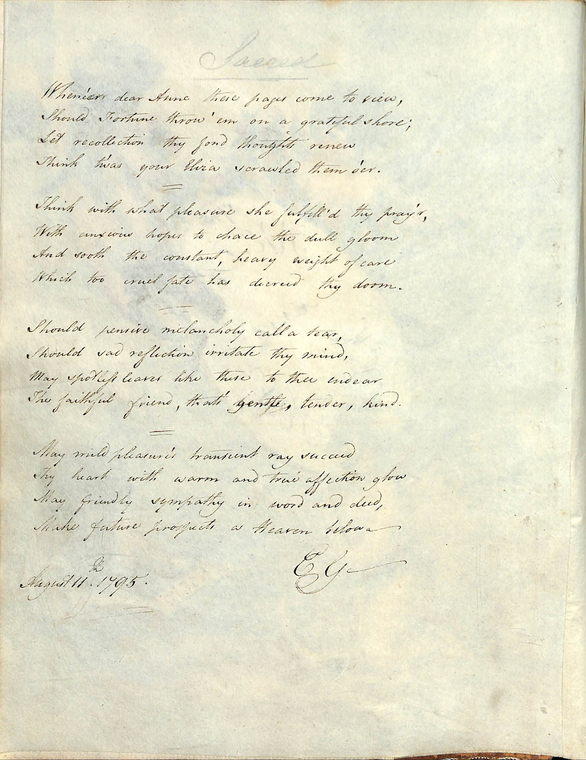 Sacred
Whene'er dear Anne these pages come to view,
Should Fortune throw 'em on a grateful shore;
Let recollection thy fond thoughts renew
Think t'was your Eliza scrawled them o'er.
Think with what pleasure she fulfill'd thy pray'r,
With anxious hopes to chace the dull gloom
And sooth the constant, heavy weight of care
Which too cruel fate has decreed thy doom.
Should pensive melancholy call a tear,
Should sad reflection irritate thy mind,
May spotless leaves like these to thee endear
The faithful friend, that's gentle, tender, kind.
May mild pleasure's transient ray succeed
Thy heart with warm and true affection glow
May friendly sympathy in word and deed,
Make future prospects a Heaven below
EG
August 11th. 1795.